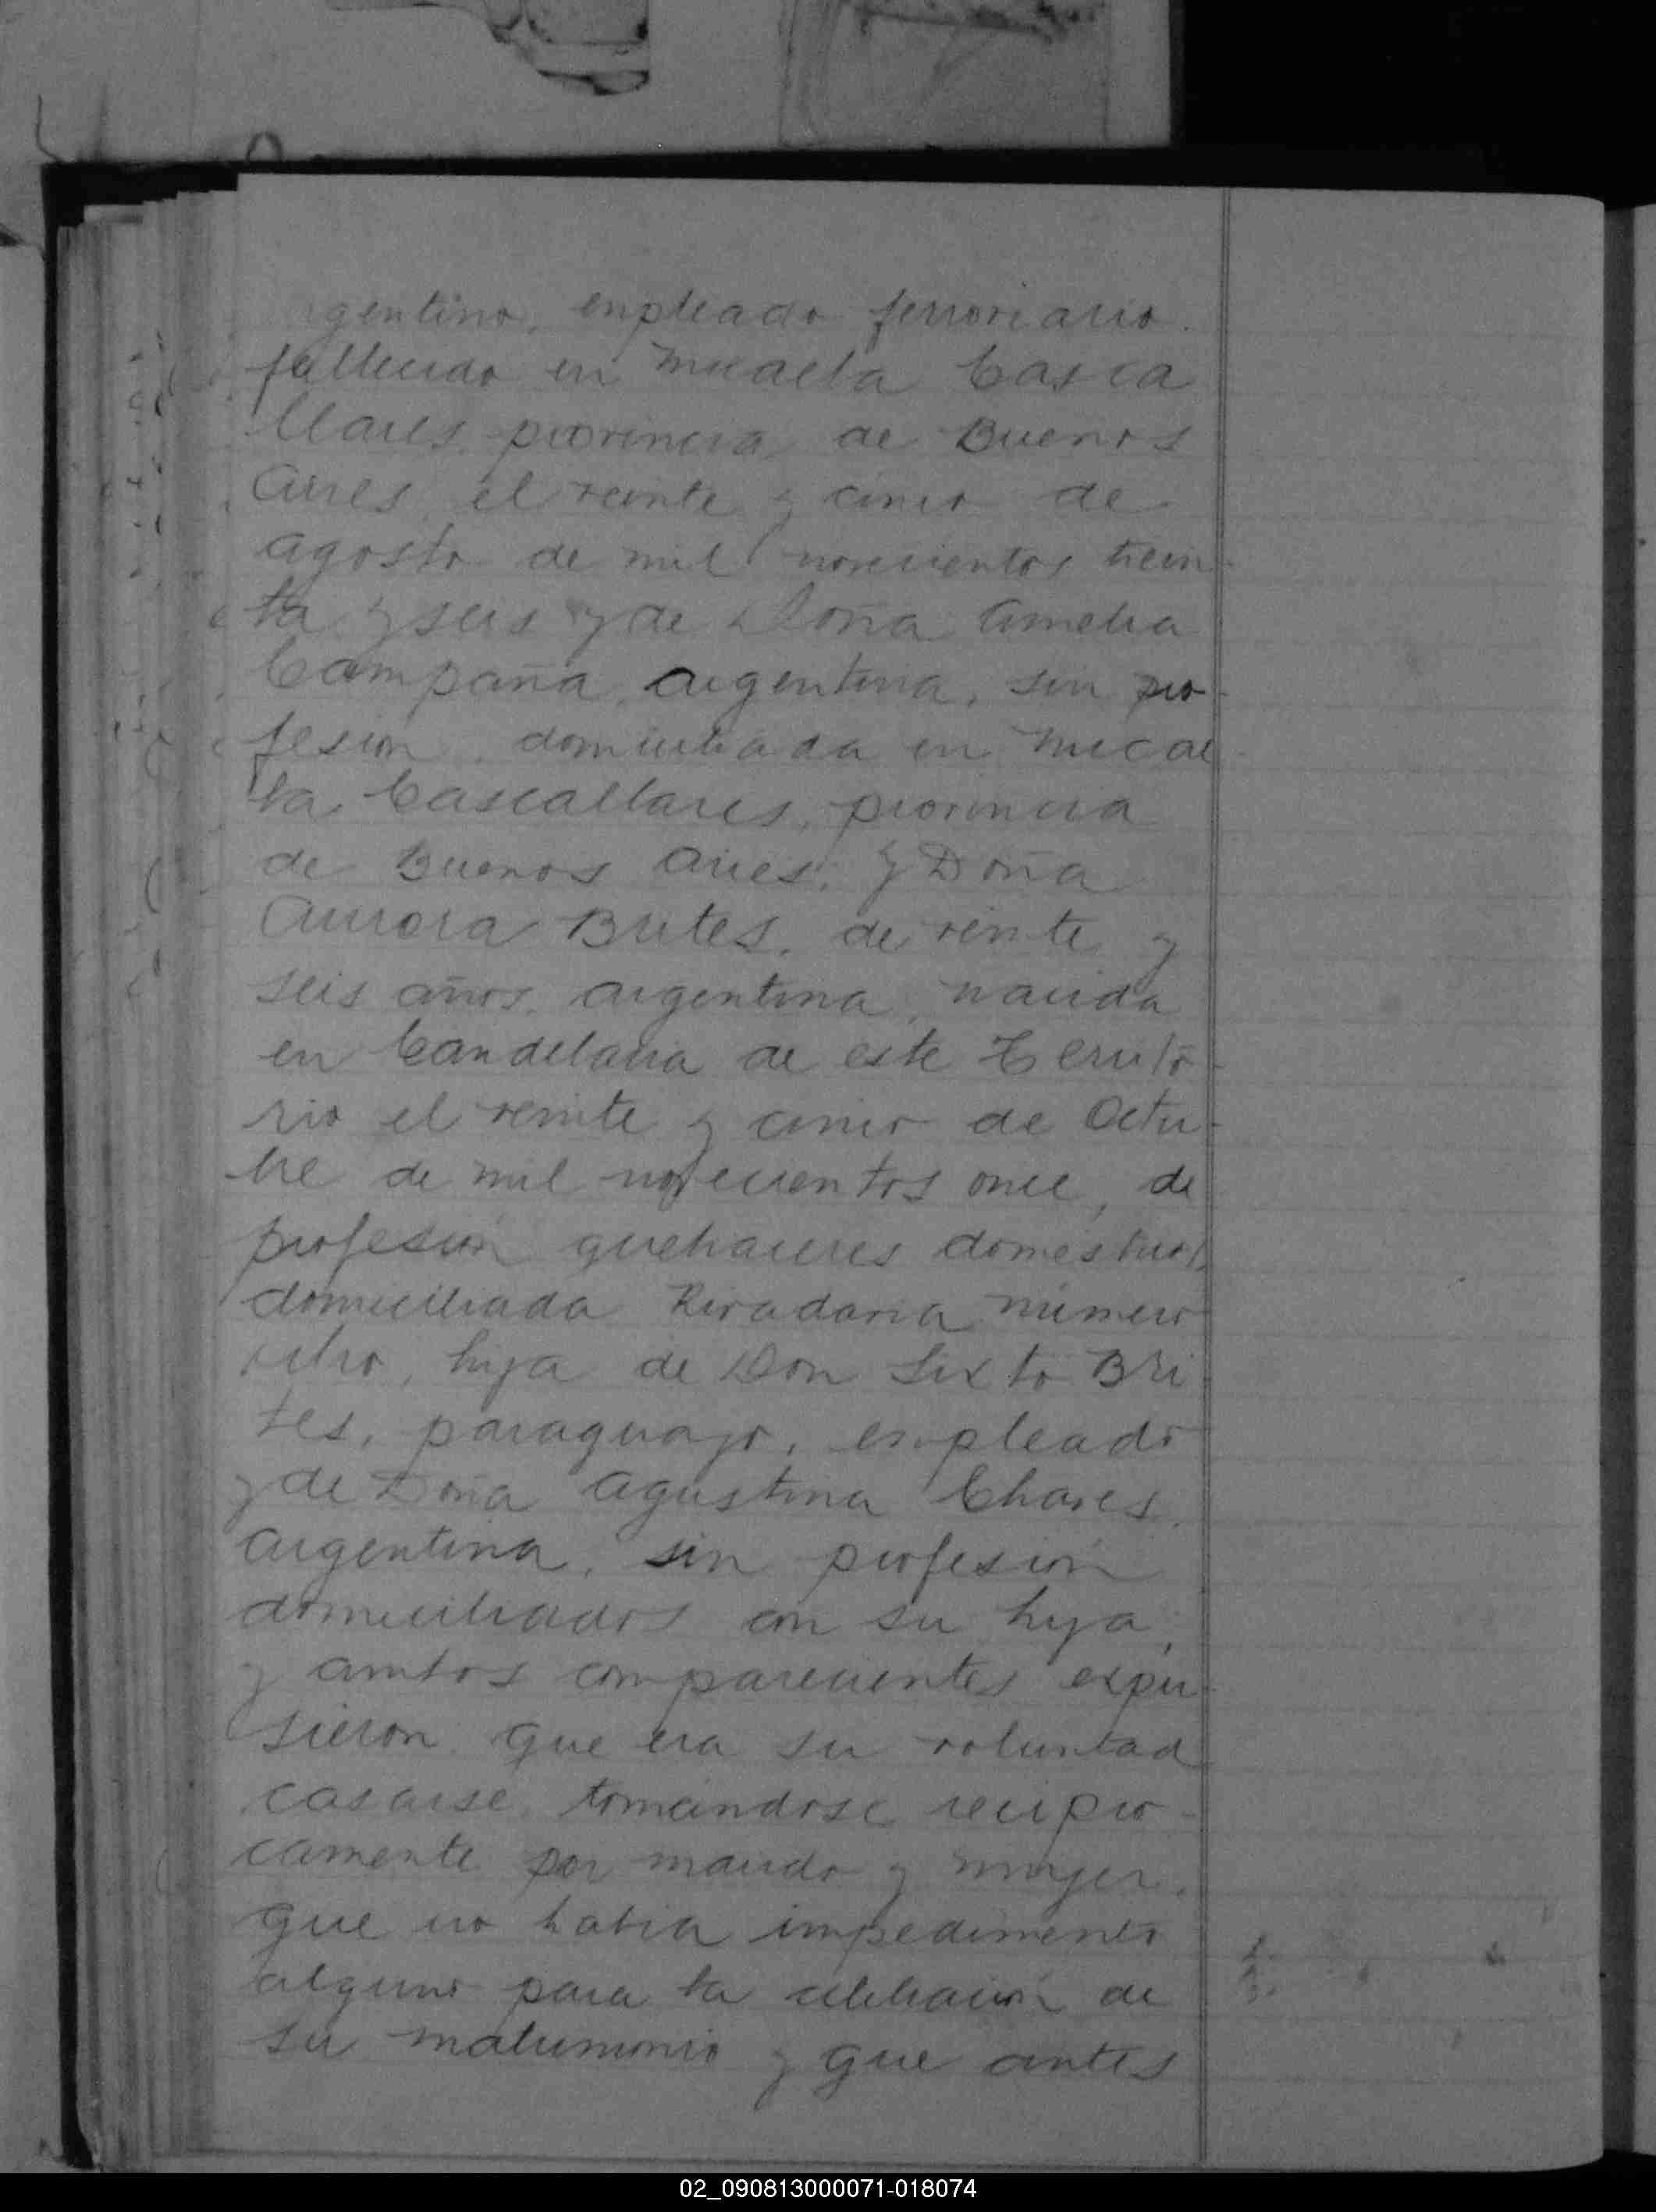 rgentino, empleado ferroviario.
fallecido en Micaela Casca
llares, provincia de Buenos
Aires, el veinte y cinco de
agosto de mil novecientos trein-
ta y seis y de Doña Amelia
Campaña, argentina, sin pro-
fesion, domiciliada en Micae-
la Cascallares, provincia
de Buenos Aires; y Doña
Aurora Brites, de veinte y
seis años, argentina, nacida
en Candelaria de este Territo-
rio el veinte y cinco de Octu-
bre de mil novecientos once, de
profesión quehaceres domésticos,
domiciliada Rivadavia número
ocho, hija de Don Sixto Bri-
tes, paraguayo, empleado
y de Doña Agustina Chaves,
argentina, sin profesión
domiciliados con su hija,
y ambos comparecientes expu-
sieron que era su voluntad
casarse, tomándose recipro-
camente por marido y mujer,
que no habia impedimento
alguno para la celebración de
su matrimonio y que antes
02_090813000071-018074